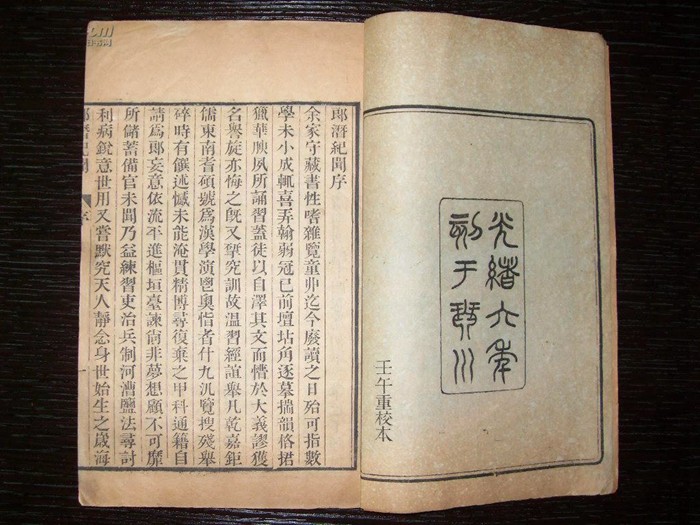 光緒六年
刻于琴川
壬午重校本
郎潛紀聞序
余家守藏書性嗜雜覽童丱迄今廢讀之日殆可指數
學未小成輒喜弄翰弱冠已前壇坫角逐摹揣韻俗捃
獵華腴夙所誦習蓋徒以自澤其文而懵於大義謬獲
名譽旋亦悔之旣又揅究訓故溫習經誼舉凡乾嘉鉅
儒東南耆碩號爲漢學演鬯奧恉者什九汎覽搜殘舉
碎時有饌述憾未能淹貫精博尋復棄之甲科通籍自
請爲郎妄意依流平進樞垣臺諫尙非夢想顧不可靡
所儲蓄備官未聞乃益練習吏治兵制河漕鹽法尋討
利病銳意世用又嘗默究天人靜念身世始生之歲海
郎潛紀聞 序 一